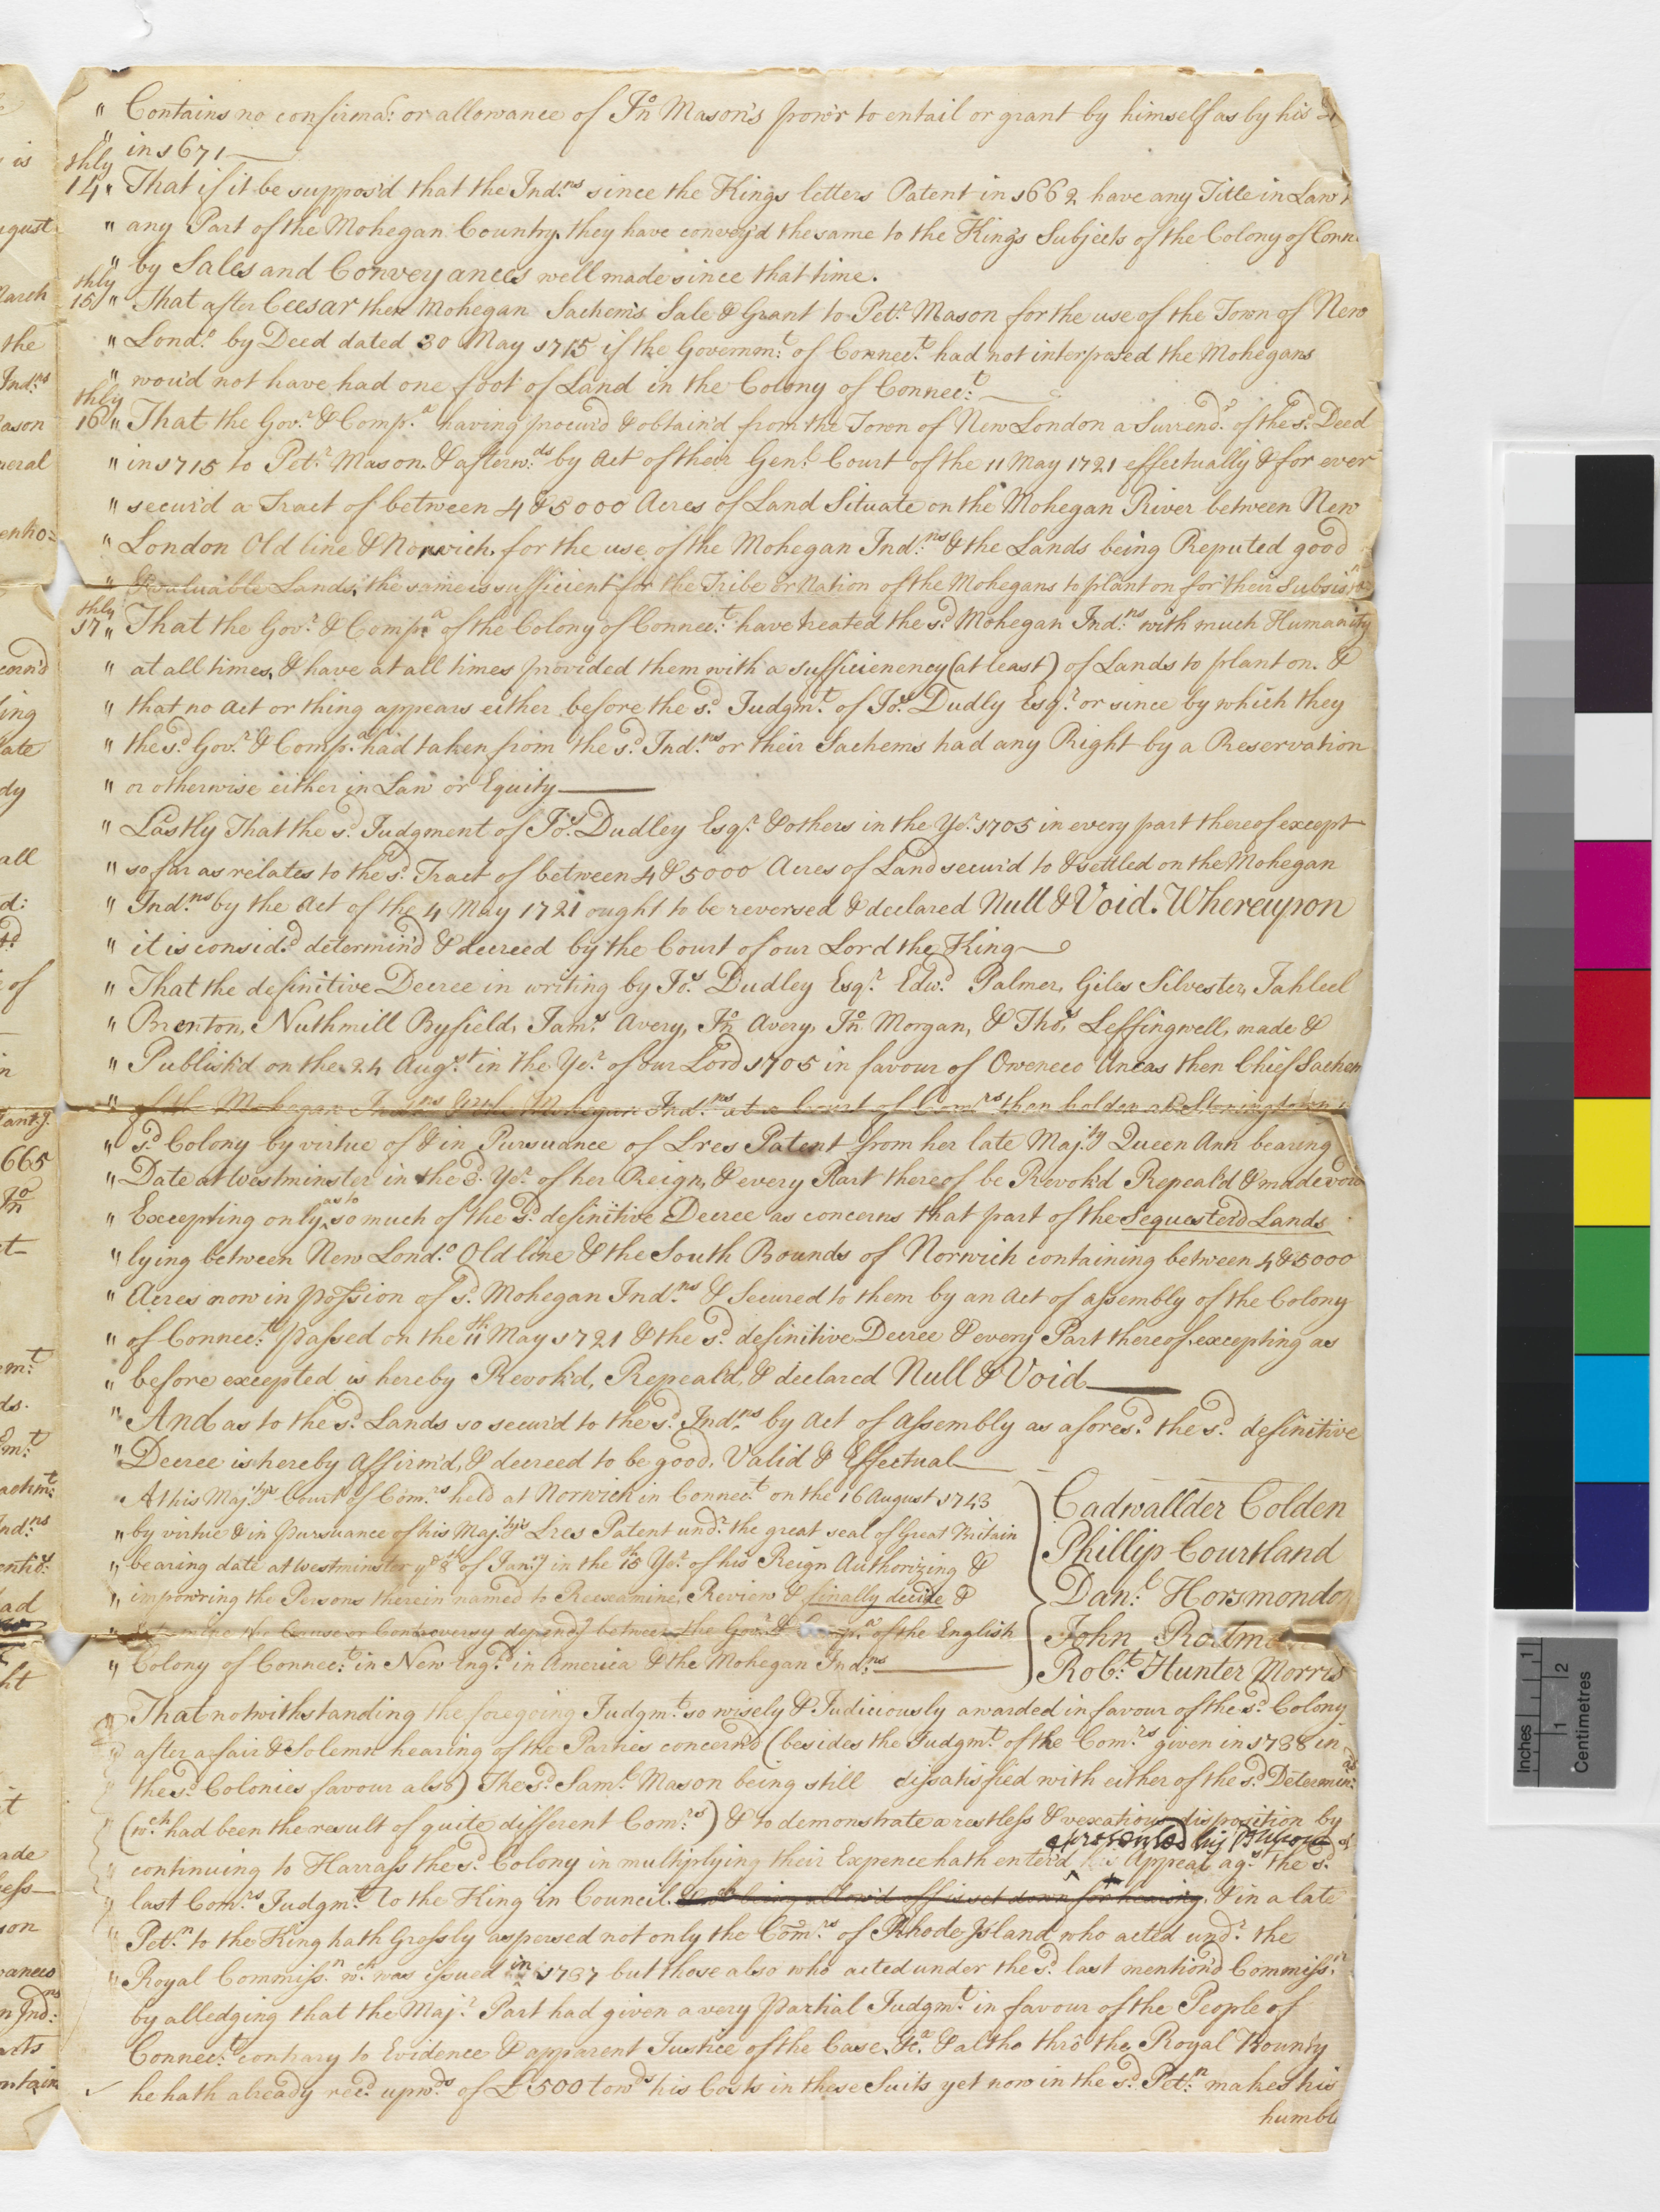 " Contains no confirma: or allowance of Jno Mason's pow'r to entail or grant by himself as by his
" in 1671
14thly " That if it be suppos'd that the Ind:ns since the Kings letters Patent in 1662 have any Title in Law
" any Part of the Mohegan Country, they have convey'd the same to the King's Subjects of the Colony of Conn
" by Sales and Conveyances well made since that time.
15thly " That after Ceesar then Mohegan Sachem's Sale & Grant to Pet:r Mason for the use of the Town of New
" Lond:o by Deed dated 30 May 1715 if the Governm:t of Connec:t had not interposed the Mohegans
" wou'd not have had one foot of Land in the Colony of Connec:t
16thly " That the Gov:r & Comp:a having procur'd & obtain'd from the Town of New London a Surrend:r of the s:d Deed
" in 1715 to Pet:r Mason, & afterw:ds by Act of their Gen:l Court of the 11 May 1721 effectually & for ever
" secur'd a Tract of between 4 & 5000 Acres of Land Situate on the Mohegan River between New
" London Old line & Norwich, for the use of the Mohegan Ind:ns & the Lands being Reputed good
" & valuable Lands, the same is sufficient for the Tribe or Nation of the Mohegans to plant on for their Subsist
17thly " That the Gov:r & Comp:a of the Colony of Connec:t have treated the s:d Mohegan Ind:ns with much Humanity
" at all times, & have at all times provided them with a sufficienency (at least) of Lands to plant on. &
" that no Act or thing appears either before the s:d Judgm:t of Jos: Dudly Esq:r or since by which they
" the s:d Gov:r & Comp:a had taken from the s:d Ind:ns or their Sachems had any Right by a Reservation
" or otherwise either in Law or Equity
" Lastly That the s:d Judgment of Jos: Dudley Esq:r & others in the Ye:r 1705 in every part thereof except
" so far as relates to the s:d Tract of between 4 & 5000 Acres of Land secur'd to & settled on the Mohegan
" Ind:ns by the Act of the 4 May 1721 ought to be reversed & declared Null & Void. Whereupon
" it is consid:d determin'd & decreed by the Court of our Lord the King
" That the definitive Decree in writing by Jos: Dudley Esq:r Edw:d Palmer, Giles Silvester, Jahleel
" Brenton, Nuthmill Byfield, Jam:s Avery, Jno Avery, Jno Morgan, & Tho:s Leffingwell, made &
" Publish'd on the 24 Aug:st in the Ye:r of our Lord 1705 in favour of Oweneco Uncas then Chief Sachem
" of the Mohegan Ind:ns & the Mohegan Ind:ns at a Court of Com:rs then holden at Stonington in
" s:d Colony by virtue of & in Pursuance of Lres Patent from her late Maj:ty Queen Ann bearing
" Date at Westminster in the 3:d Ye:r of her Reign, & every Part thereof be Revok'd Repeal'd & made void
" Excepting only as to so much of the s:d definitive Decree as concerns that part of the Sequester'd Lands
" lying between New Lond:o Old line & the South Bounds of Norwich containing between 4 & 5000
" Acres now in possion of s:d Mohegan Ind:ns & Secured to them by an Act of assembly of the Colony
" of Connec:t passed on the 11th May 1721 & the s:d definitive Decree & every Part thereof excepting as
" before excepted is hereby Revok'd, Repeal'd, & declared Null & Void
" And as to the s:d Lands so secur'd to the s:d Ind:ns by Act of Assembly as afores:d the s:d definitive
" Decree is hereby Affirm'd, & decreed to be good, Valid & Effectual
At his Maj:tys Court of Com:rs held at Norwich in Connec:t on the 16 August 1743
" by virtue & in pursuance of his Maj:tys Lres Patent und:r the great seal of Great Britain
" bearing date at Westminster ye 8th of Jan:y in the 15th Ye:r of his Reign Authorizing &
" impow'ring the Persons therein named to Reexamine, Review & finally decide &
" determine the Cause or Controversy depend:g between the Gov:r & Comp:a of the English
" Colony of Connec:t in New Eng:d in America & the Mohegan Ind:ns
Cadwallder Colden
Phillip Courtland
Dan:l Horsmondon
John Rodtma
Rob:t Hunter Morris
" That notwithstanding the foregoing Judgm:t so wisely & Judiciously awarded in favour of the s:d Colony
" after a fair & Solemn hearing of the Parties concern'd (besides the Judgm:t of the Com:rs given in 1738 in
" the s:d Colonies favour also) The s:d Sam:l Mason being still dissatisfied with either of the s:d Determin:ns
(wch had been the result of quite different Com:rs) & to demonstrate a restless & vexatious disposition by
" continuing to Harrass the s:d Colony in multiplying their Expence hath enter'd his Appeal ag:st the s:d
" last Com:rs Judgm:t to the King in Council. & in a late
" Pet:n to the King hath Grossly aspersed not only the Com:rs of Rhode Island who acted und:r the
" Royal Commiss:n wch was issued in 1737 but those also who acted under the s:d last mention'd Commiss:n
by alledging that the Maj:r Part had given a very partial Judgm:t in favour of the People of
Connec:t contrary to Evidence & apparent Justice of the Case, &c:a & altho thrô the Royal Bounty
he hath already rec:d upw:ds of £500 tow:ds his Costs in these Suits yet now in the s:d Pet:n makes his
humble